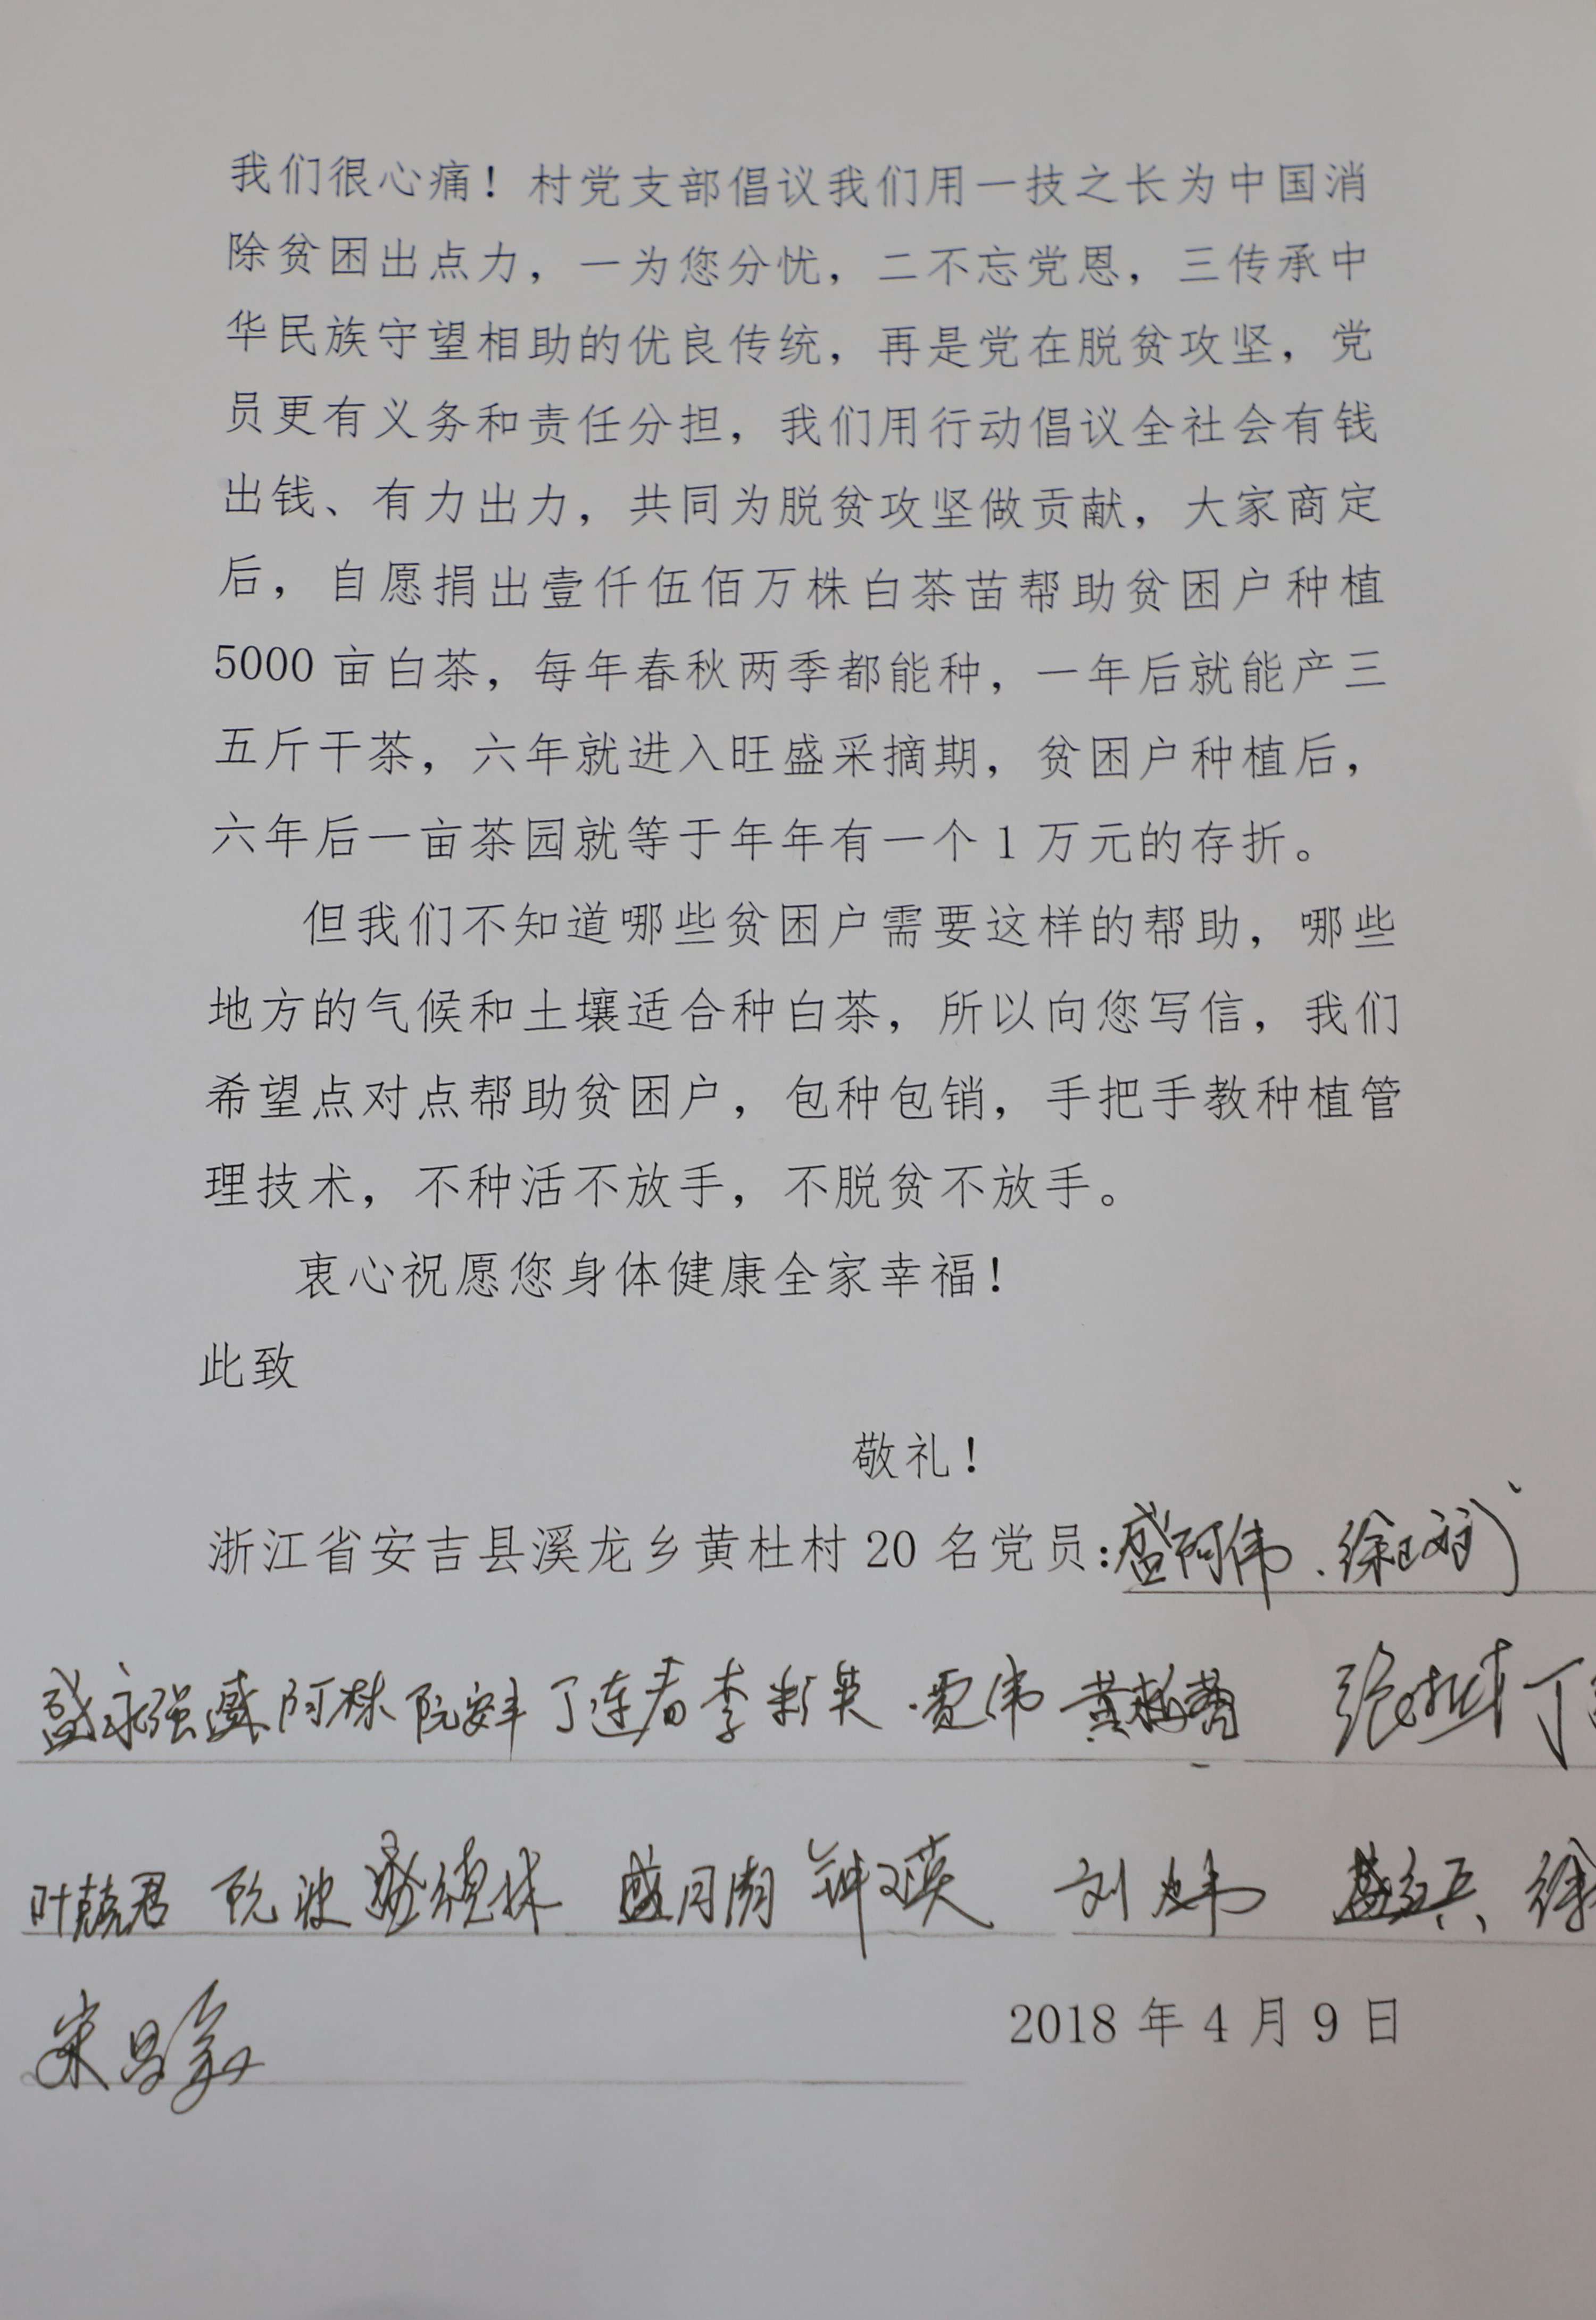 我们很心痛！村党支部倡议我们用一技之长为中国消
除贫困出点力，一为您分忧，二不忘党恩，三传承中
华民族守望相助的优良传统，再是党在脱贫攻坚，党
员更有义务和责任分担，我们用行动倡议全社会有钱
出钱、有力出力，共同为脱贫攻坚做贡献，大家商定
后，自愿捐出壹仟伍佰万株白茶苗帮助贫困户种植
5000 亩白茶，每年春秋两季都能种，一年后就能产三
五斤干茶，六年就进入旺盛采摘期，贫困户种植后，
六年后一亩茶园就等于年年有一个 1 万元的存折。
但我们不知道哪些贫困户需要这样的帮助，哪些
地方的气候和土壤适合种白茶，所以向您写信，我们
希望点对点帮助贫困户，包种包销，手把手教种植管
理技术，不种活不放手，不脱贫不放手。
衷心祝愿您身体健康全家幸福！
此致
敬礼！
浙江省安吉县溪龙乡黄杜村 20 名党员：盛阿伟
盛永强 盛阿林 阮安丰 丁连春 李粉英 贾伟
叶克君 阮波 盛德林 盛月潮 钟文英 刘炜 盛红兵
宋昌美
2018 年 4 月 9 日